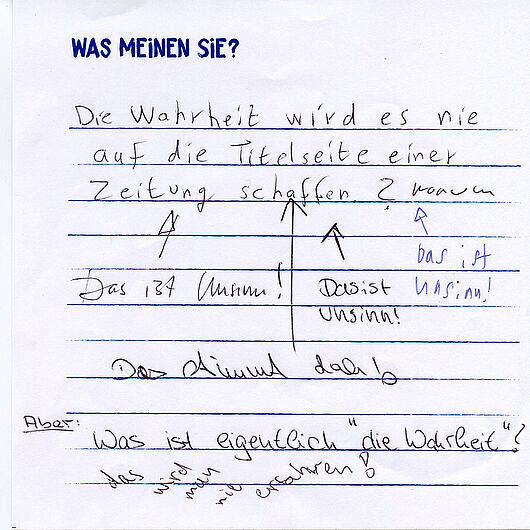 WAS MEINEN SIE?
Die Wahrheit wird es nie
auf die Titelseite einer
Zeitung schaffen ? warum
Das ist Unsinn!
Das ist
Unsinn!
Das ist
Unsinn!
Das stimmt
Aber:
Was ist eigentlich "die Wahrheit"?
das wird man nie erfahren!